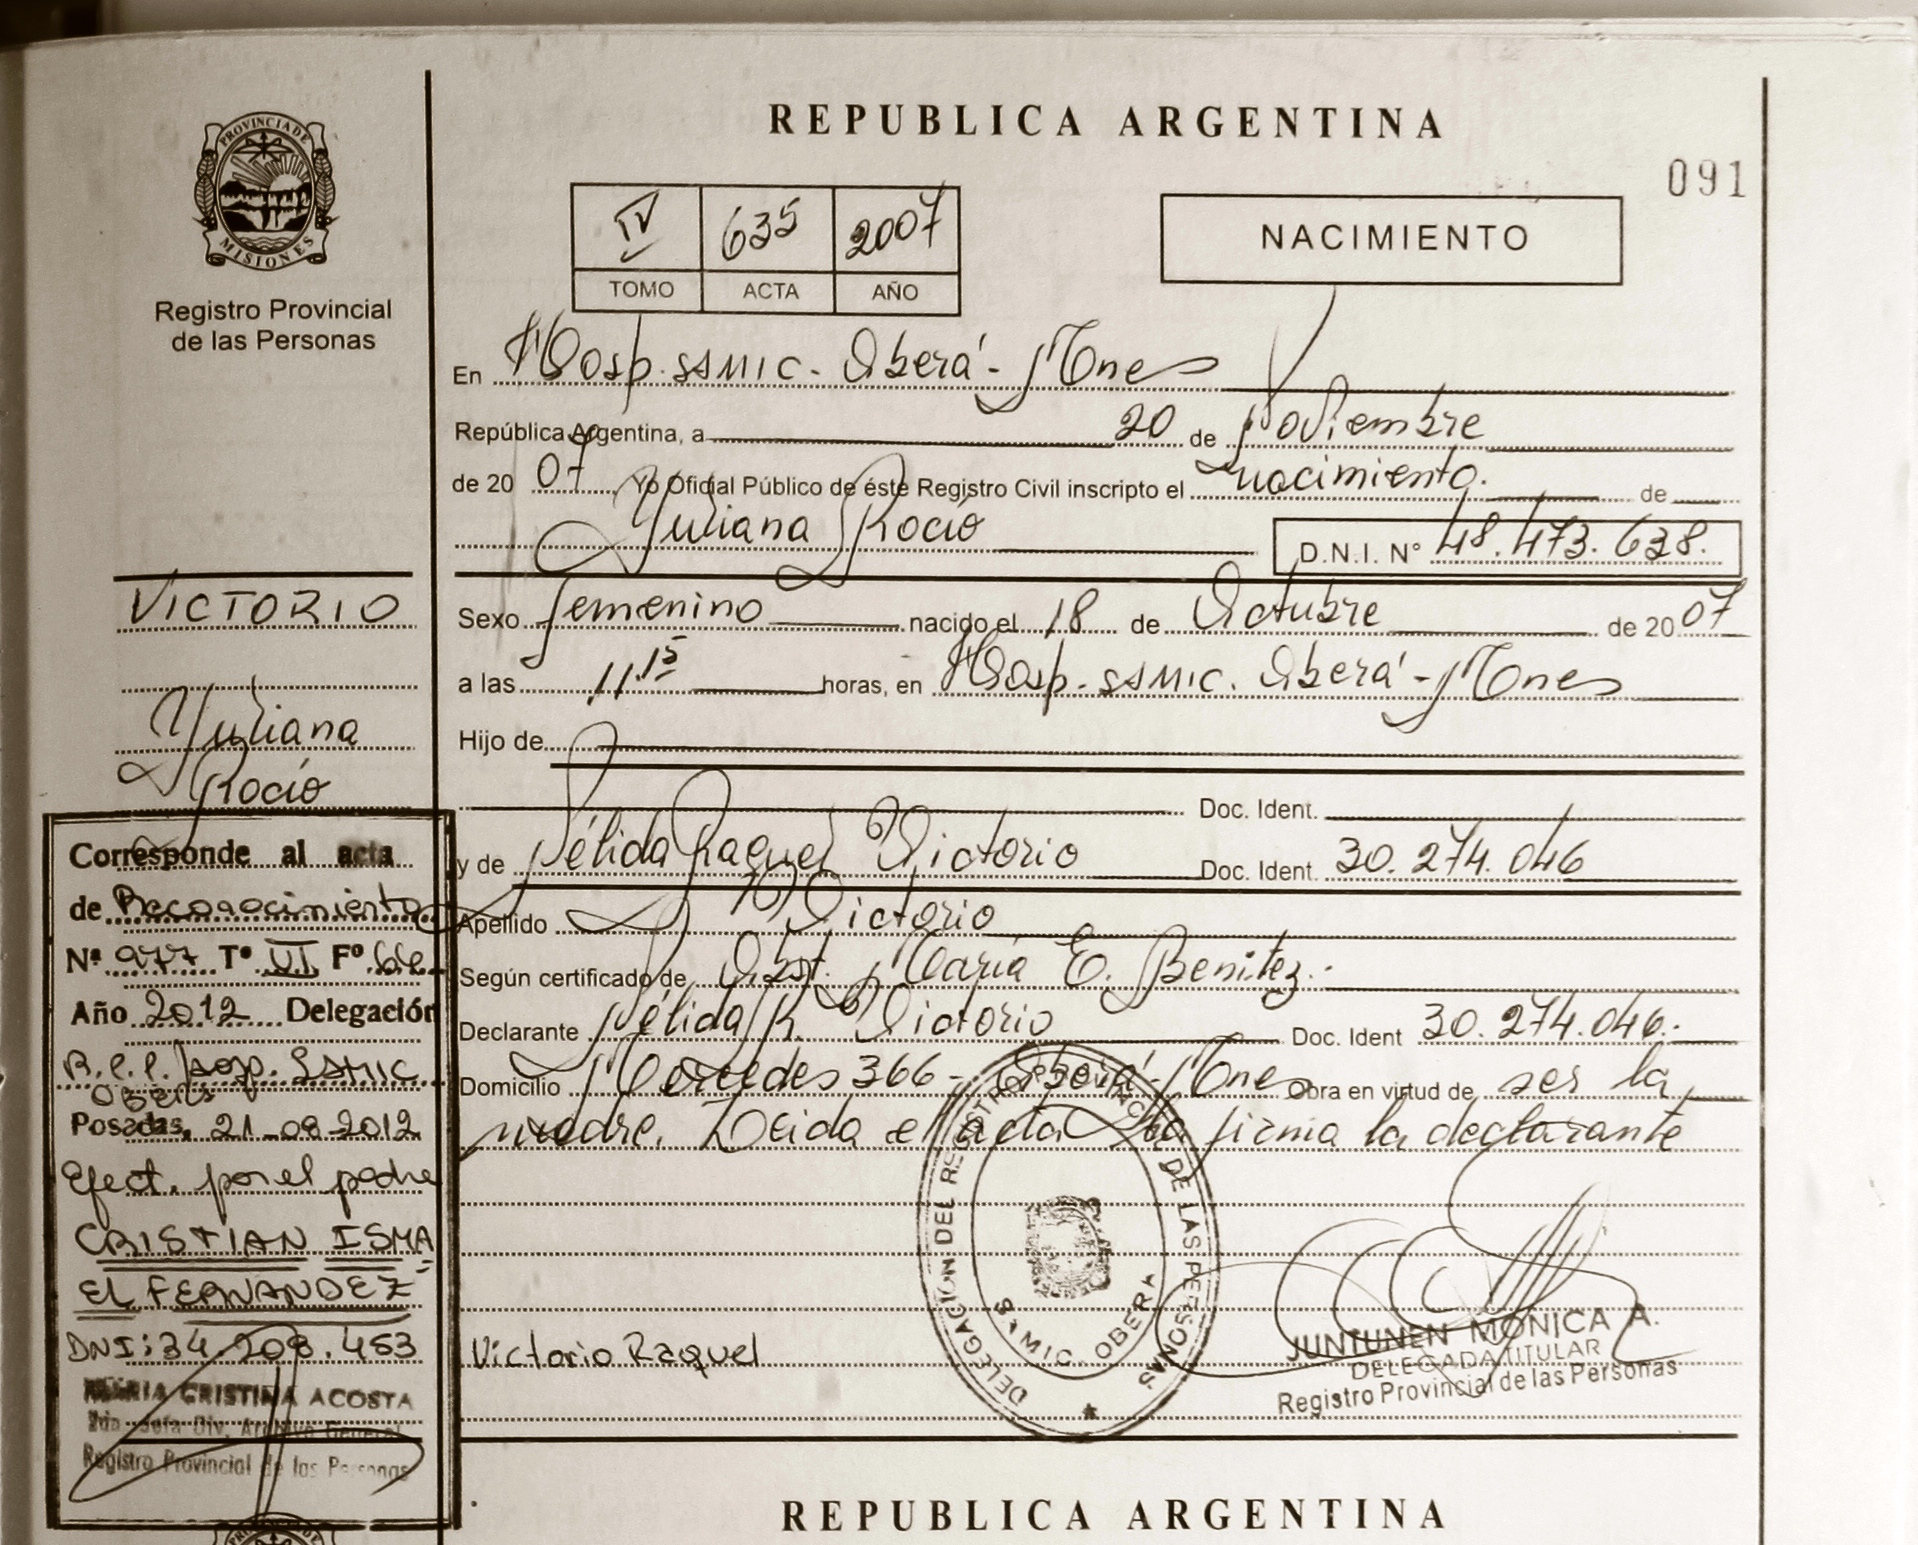 REPUBLICA ARGENTINA
091
PROVINCIA DE
MISIONES
Registro Provincial
de las Personas
IV 635 2007
TOMO ACTA AÑO
NACIMIENTO
En Hosp. SAMIC - Oberá - Mnes
República Argentina, a 20 de Noviembre
de 2007 Yo Oficial Público de éste Registro Civil inscripto el nacimiento. de
Yuliana Rocío D.N.I. Nº 48.473.638.
Sexo femenino nacido el 18 de Octubre de 2007
a las 11.15 horas, en Hosp. SAMIC. Oberá - Mnes
Hijo de
Doc. Ident.
y de Nélida Raquel Victorio Doc. Ident. 30.274.046
Apellido Victorio
Según certificado de Obst. María E. Benitez.-
Declarante Nélida R. Victorio Doc. Ident 30.274.046.-
Domicilio Mercedes 366 - Oberá - Mnes Obra en virtud de ser la
madre. Leida el acta la firma la declarante
Victorio Raquel
DELEGACION DEL REGISTRO PROVINCIAL DE LAS PERSONAS
SAMIC. OBERA
JUNTUNEN MONICA A.
DELEGADA TITULAR
Registro Provincial de las Personas
VICTORIO
Yuliana
Rocío
Corresponde al acta
de Reconocimiento
Nº 977 Tº VI Fº
Año 2012 Delegación
R.C.P. Hosp. SAMIC
Oberá
Posadas, 21-08-2012
Efect. por el padre
CRISTIAN ISMA
EL FERNANDEZ
DNI: 34.208.453
MARIA CRISTINA ACOSTA
2da Jefa Div. Archivo General
Registro Provincial de las Personas
REPUBLICA ARGENTINA